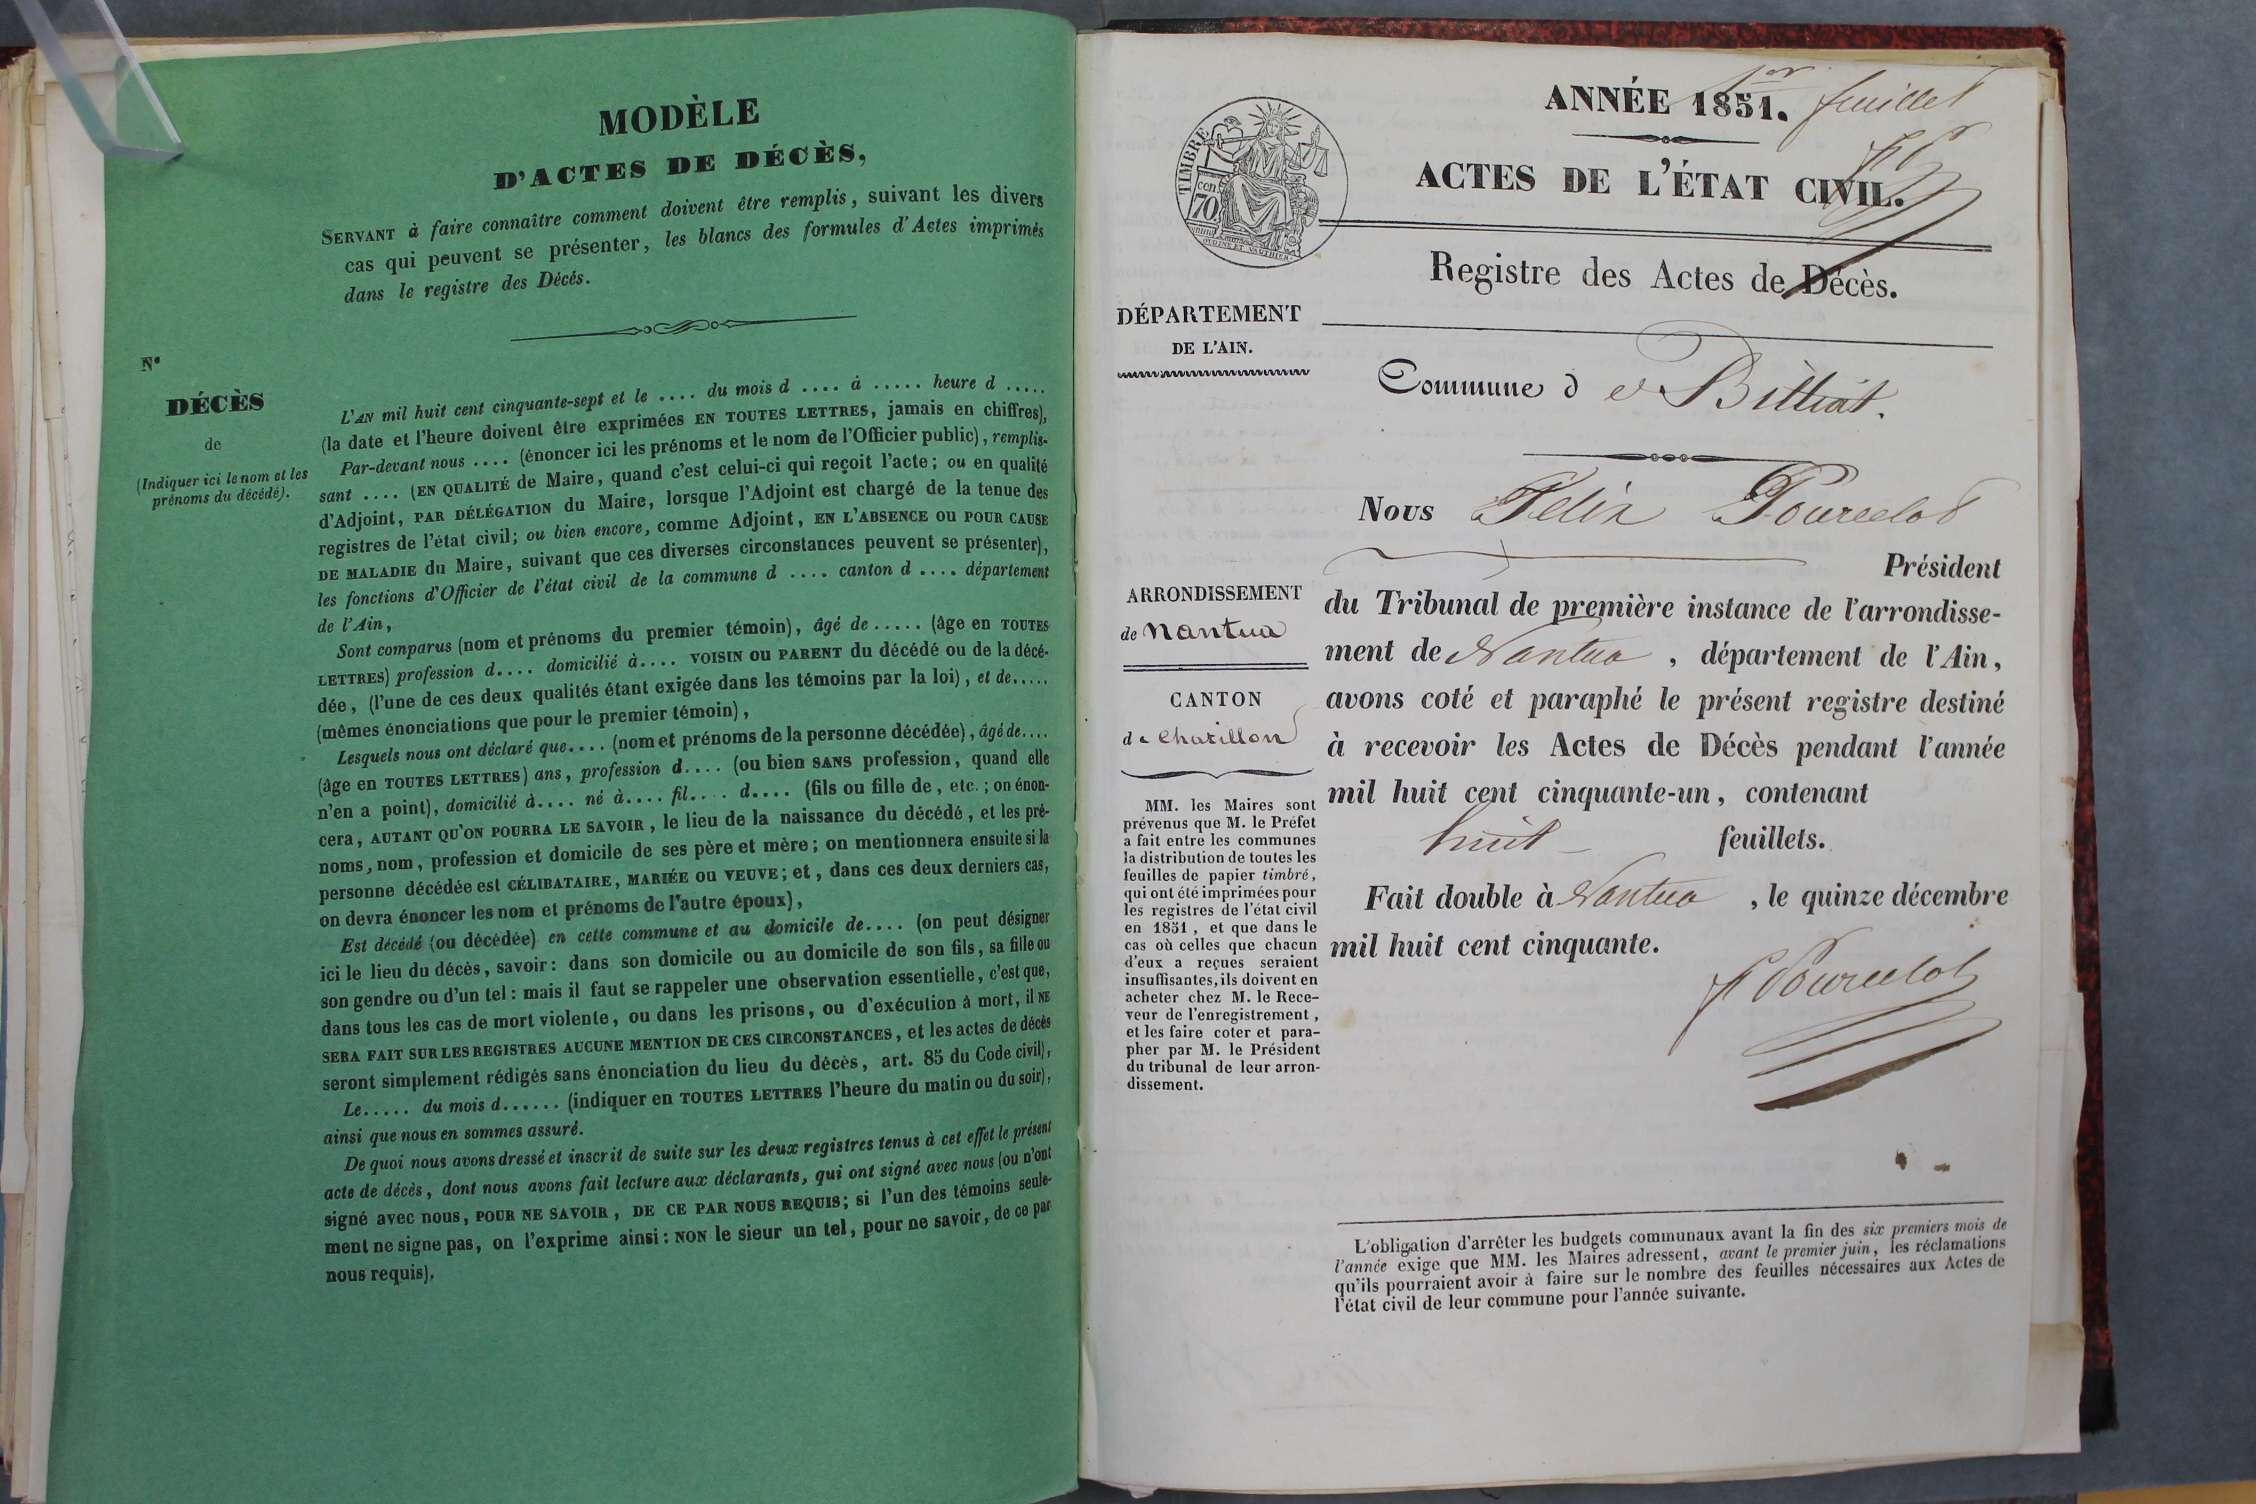 MODÈLE
D'ACTES DE DÉCÈS,
SERVANT à faire connaître comment doivent être remplis, suivant les divers
cas qui peuvent se présenter, les blancs des formules d'Actes imprimés
dans le registre des Décés.
N°
DÉCÈS
de
(Indiquer ici le nom et les
prénoms du décédé).
L'AN mil huit cent cinquante-sept et le .... du mois d .... à ..... heure d .....
(la date et l'heure doivent être exprimées EN TOUTES LETTRES, jamais en chiffres),
Par-devant nous .... (énoncer ici les prénoms et le nom de l'Officier public), remplis-
sant .... (EN QUALITÉ de Maire, quand c'est celui-ci qui reçoit l'acte; ou en qualité
d'Adjoint, PAR DÉLÉGATION du Maire, lorsque l'Adjoint est chargé de la tenue des
registres de l'état civil; ou bien encore, comme Adjoint, EN L'ABSENCE OU POUR CAUSE
DE MALADIE du Maire, suivant que ces diverses circonstances peuvent se présenter),
les fonctions d'Officier de l'état civil de la commune d .... canton d .... département
de l'Ain,
Sont comparus (nom et prénoms du premier témoin), âgé de ..... (âge en TOUTES
LETTRES) profession d.... domicilié à.... VOISIN OU PARENT du décédé ou de la décé-
dée, (l'une de ces deux qualités étant exigée dans les témoins par la loi), et de.....
(mêmes énonciations que pour le premier témoin),
Lesquels nous ont déclaré que.... (nom et prénoms de la personne décédée), âgé de....
(âge en TOUTES LETTRES) ans, profession d.... (ou bien SANS profession, quand elle
n'en a point), domicilié à.... né à.... fil.... d.... (fils ou fille de, etc.; on énon-
cera, AUTANT QU'ON POURRA LE SAVOIR, le lieu de la naissance du décédé, et les pré-
noms, nom, profession et domicile de ses père et mère; on mentionnera ensuite si la
personne décédée est CÉLIBATAIRE, MARIÉE OU VEUVE; et, dans ces deux derniers cas,
on devra énoncer les nom et prénoms de l'autre époux),
Est décédé (ou décédée) en cette commune et au domicile de.... (on peut désigner
ici le lieu du décès, savoir: dans son domicile ou au domicile de son fils, sa fille ou
son gendre ou d'un tel: mais il faut se rappeler une observation essentielle, c'est que,
dans tous les cas de mort violente, ou dans les prisons, ou d'exécution à mort, il NE
SERA FAIT SUR LES REGISTRES AUCUNE MENTION DE CES CIRCONSTANCES, et les actes de décès
seront simplement rédigés sans énonciation du lieu du décès, art. 85 du Code civil),
Le..... du mois d...... (indiquer en TOUTES LETTRES l'heure du matin ou du soir),
ainsi que nous en sommes assuré.
De quoi nous avons dressé et inscrit de suite sur les deux registres tenus à cet effet le présent
acte de décès, dont nous avons fait lecture aux déclarants, qui ont signé avec nous (ou n'ont
signé avec nous, POUR NE SAVOIR, DE CE PAR NOUS REQUIS; si l'un des témoins seule-
ment ne signe pas, on l'exprime ainsi: NON le sieur un tel, pour ne savoir, de ce par
nous requis),
1er feuillet
ANNÉE 1851.
TIMBRE
cen
70
OUDINE ET GAUTHIER
ACTES DE L'ÉTAT CIVIL.
Registre des Actes de Décès.
DÉPARTEMENT
DE L'AIN.
Commune d e Billiat.
Nous Felix Pourcelot
Président
ARRONDISSEMENT
de Nantua
CANTON
de Chatillon
du Tribunal de première instance de l'arrondisse-
ment de Nantua, département de l'Ain,
avons coté et paraphé le présent registre destiné
à recevoir les Actes de Décès pendant l'année
mil huit cent cinquante-un, contenant
huit feuillets.
Fait double à Nantua, le quinze décembre
mil huit cent cinquante.
F Pourcelot
MM. les Maires sont
prévenus que M. le Préfet
a fait entre les communes
la distribution de toutes les
feuilles de papier timbré,
qui ont été imprimées pour
les registres de l'état civil
en 1851, et que dans le
cas où celles que chacun
d'eux a reçues seraient
insuffisantes, ils doivent en
acheter chez M. le Rece-
veur de l'enregistrement,
et les faire coter et para-
pher par M. le Président
du tribunal de leur arron-
dissement.
L'obligation d'arrêter les budgets communaux avant la fin des six premiers mois de
l'année exige que MM. les Maires adressent, avant le premier juin, les réclamations
qu'ils pourraient avoir à faire sur le nombre des feuilles nécessaires aux Actes de
l'état civil de leur commune pour l'année suivante.